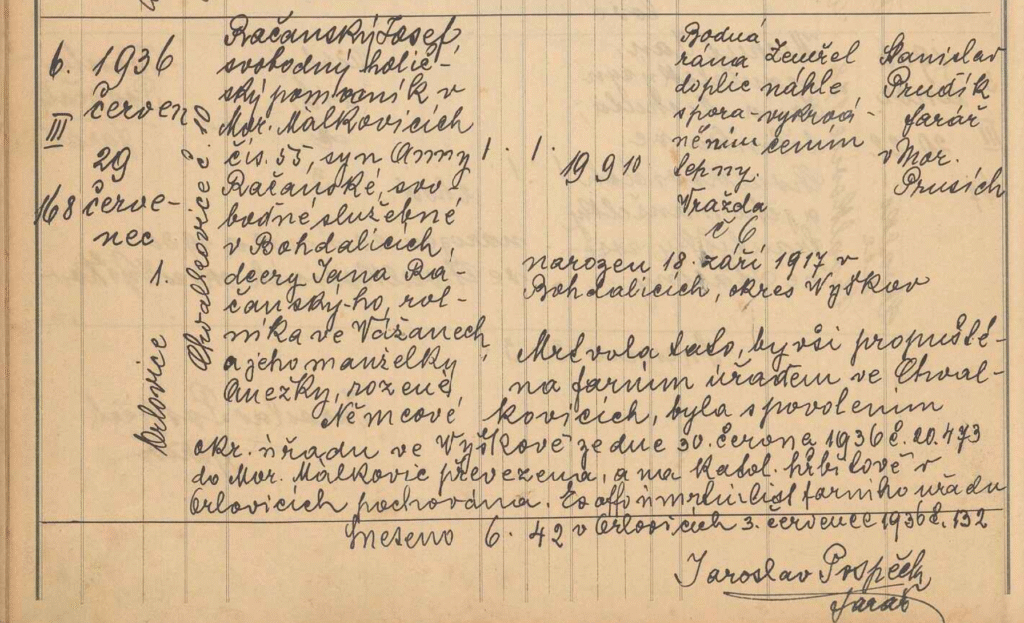 6. 1936 červen 29
III
168 července-
nec 1.
Orlovice
Chvalkovice č. 10
Račanský Josef
svobodný holič-
ský pomocník v
Mor. Málkovicích
čís. 55, syn Anny
Račanské, svo-
bodné služebné
v Bohdalicích,
dcery Jana Ra-
čanský-ho, rol-
níka ve Vážanech,
a jeho manželky
Anežky, rozené
Němcové
1. 1. 19 9 10
Bodná
rána
doplic
spora-
něním
tepny.
Vražda
č 6
Zemřel
náhle
vykrvá-
cením
Stanislav
Prudík
farář
v Mor.
Prusích
narozen 18. září 1917 v
Bohdalicích, okres Vyškov
Mrtvola tato, byvši propuště-
na farním úřadem ve Chval-
kovicích, byla s povolením
okr. úřadu ve Vyškově ze dne 30. června 1936 č. 20.473
do Mor. Málkovic převezena, a na katol. hřbitově v
Orlovicích pochována. Ex offo úmrtní list farního úřadu
v Orlovicích 3. července 1936 č. 132
Sneseno 6. 42
Jaroslav Pospěch
farář